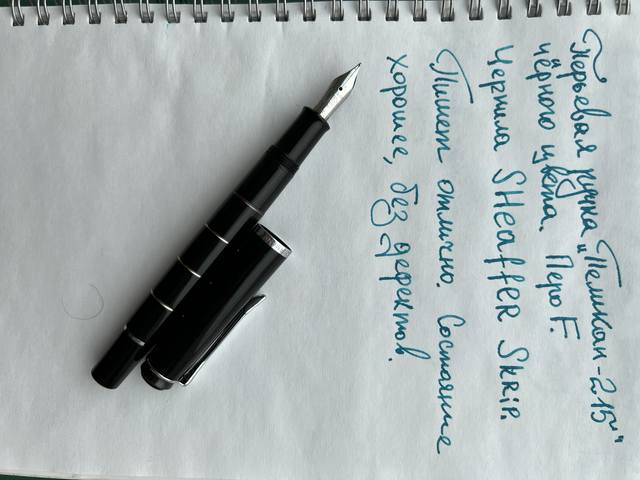 Перьевая ручка "Пеликан-215"
чёрного цвета. Перо F.
Чернила SHeaffeR SkRip.
Пишет отлично. Состояние
хорошее, без дефектов.